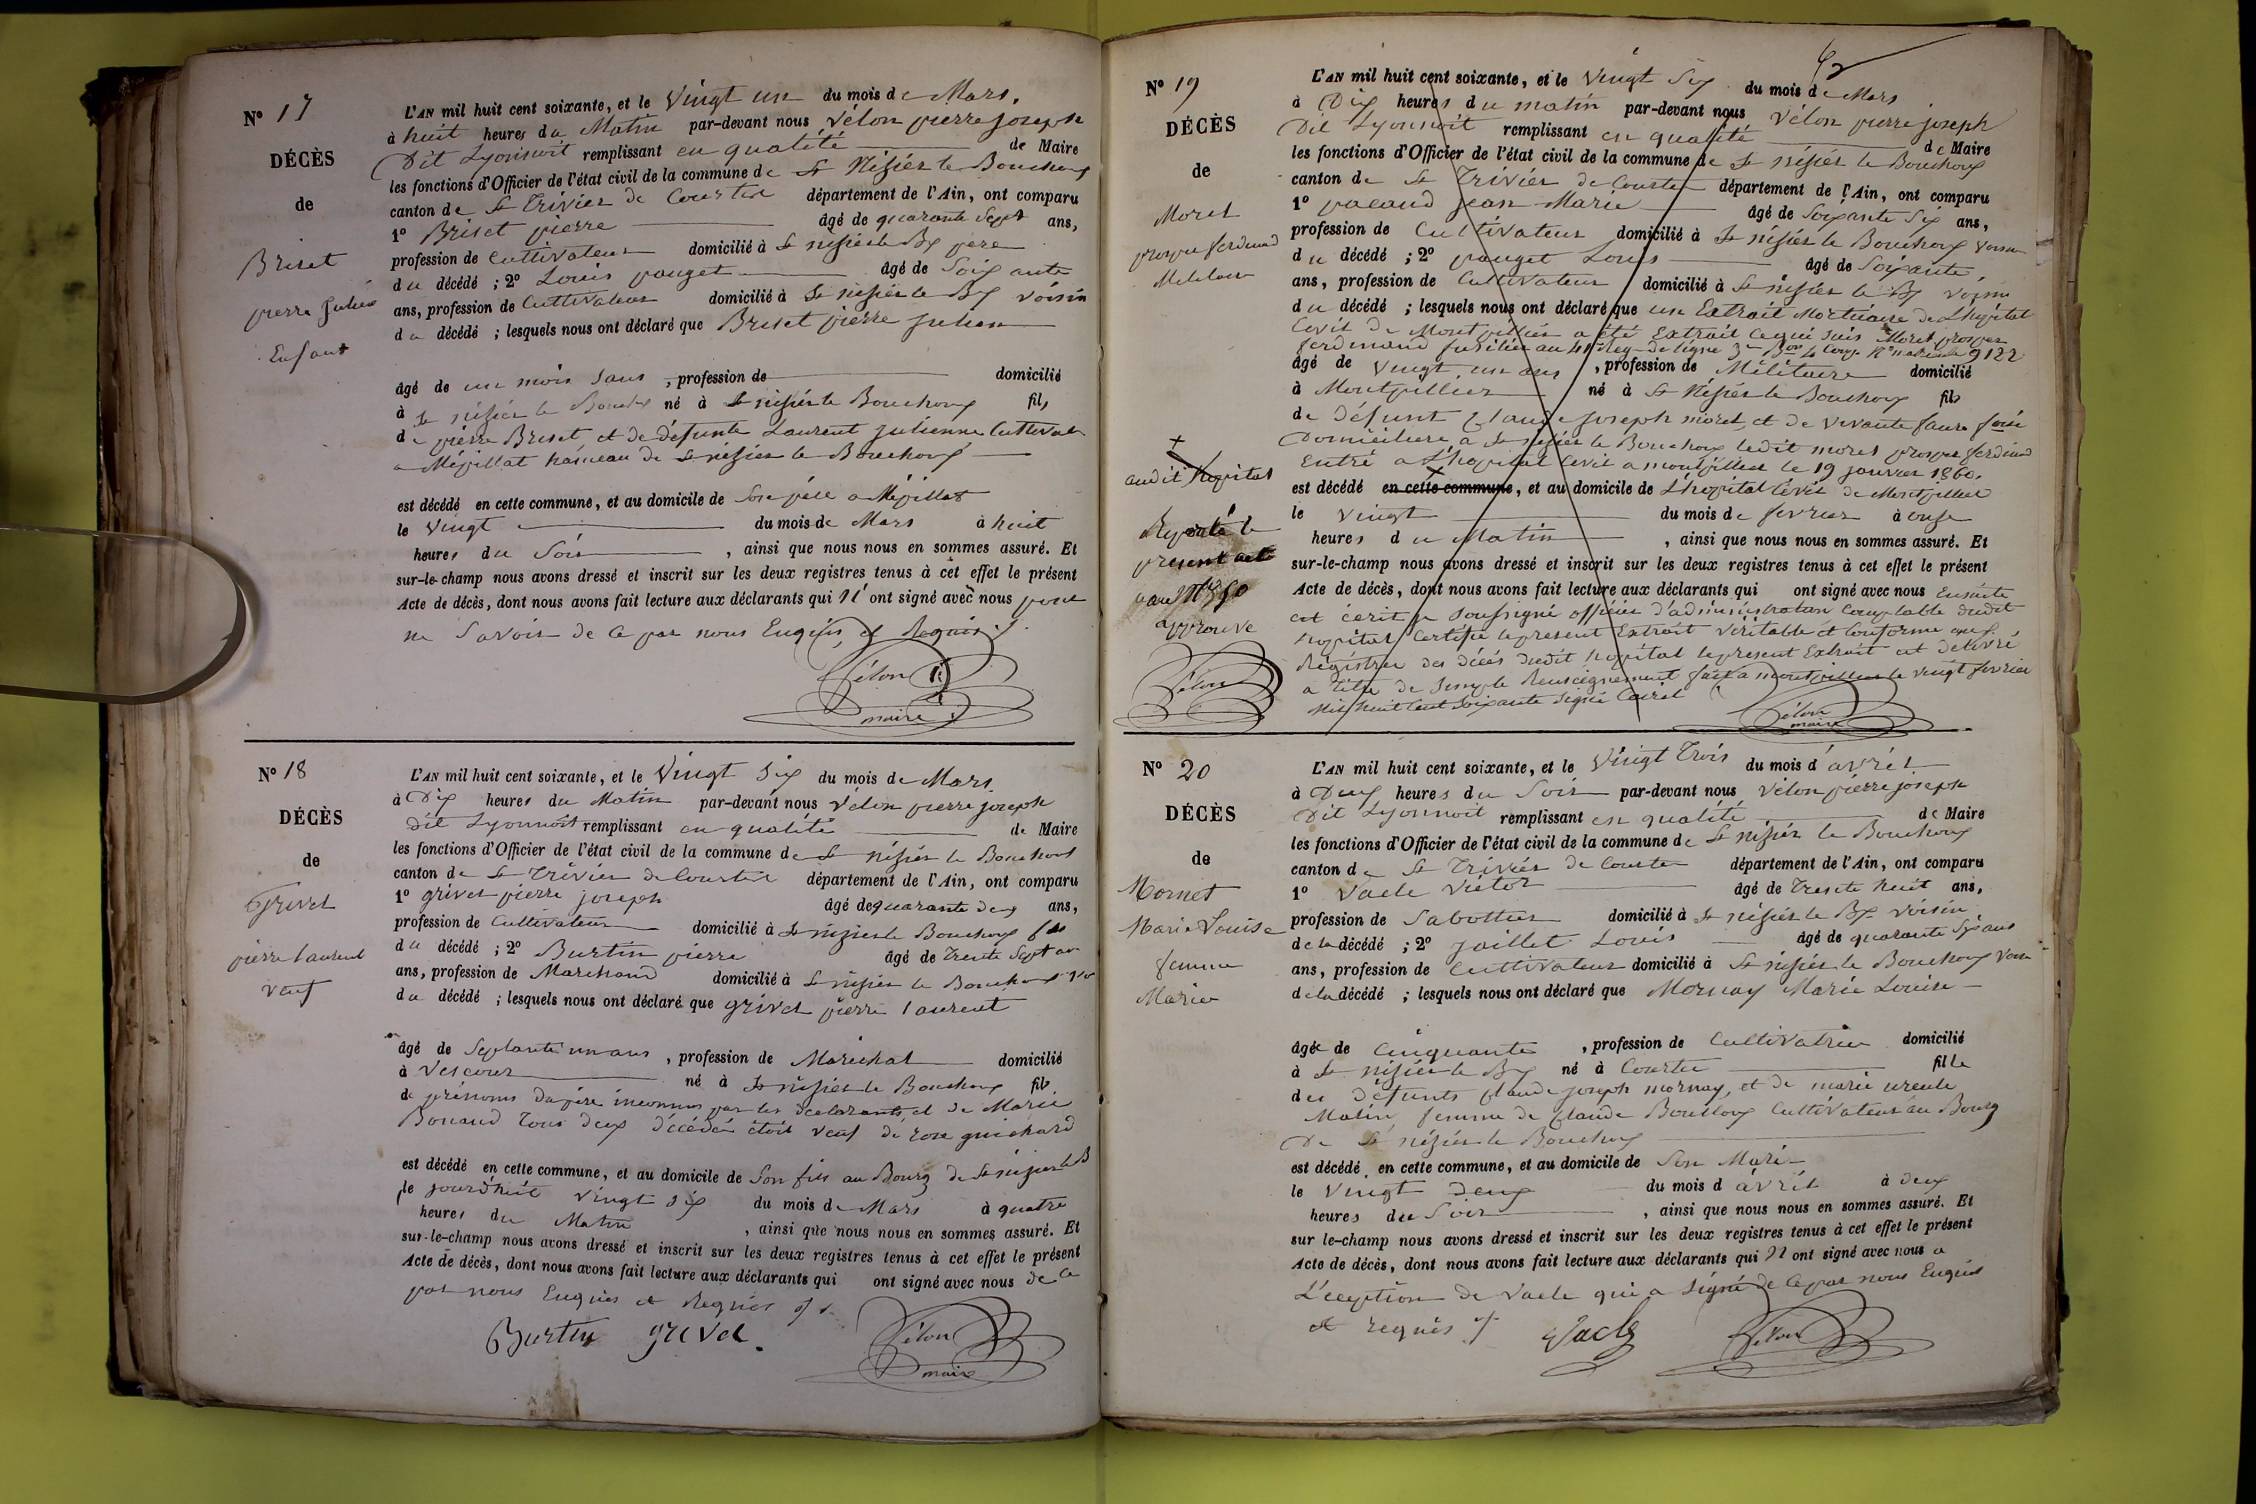 N° 17
DÉCÈS
de
Briset
pierre Julien
Enfant
L'AN mil huit cent soixante, et le Vingt un du mois de Mars,
à huit heures du Matin par-devant nous Vélon pierre joseph
Dit Lyonnoit remplissant en qualité de Maire
les fonctions d'Officier de l'état civil de la commune de St Nisier le Bouchoux
canton de St Trivier de Courtes département de l'Ain, ont comparu
1° Briset pierre âgé de quarante Sept ans,
profession de Cultivateur domicilié à St nisier le Bx père
du décédé ; 2° Louis pauget âgé de Soixante
ans, profession de Cultivateur domicilié à St nisier le Bx voisin
du décédé ; lesquels nous ont déclaré que Briset pierre julien
âgé de un mois Sans , profession de domicilié
à St nisier le Bouchx né à St nisier le Bouchoux fils
de pierre Briset et de défunte Laurent julienne Cultivat
a Mépillat hameau de St nisier le Bouchoux
est décédé en cette commune, et au domicile de Son père a Mépillat
le Vingt du mois de Mars à huit
heures du Soir , ainsi que nous nous en sommes assuré. Et
sur-le-champ nous avons dressé et inscrit sur les deux registres tenus à cet effet le présent
Acte de décès, dont nous avons fait lecture aux déclarants qui n' ont signé avec nous pour
ne Savoir de ce par nous Enquis et Requis ./.
Vélon
maire
N° 18
DÉCÈS
de
Grivet
pierre Laurent
veuf
L'AN mil huit cent soixante, et le Vingt Six du mois de Mars
à Dix heures du Matin par-devant nous Vélon pierre joseph
dit Lyonnoit remplissant en qualité de Maire
les fonctions d'Officier de l'état civil de la commune de St nisier le Bouchoux
canton de St Trivier de Courtes département de l'Ain, ont comparu
1° grivet pierre joseph âgé de quarante deux ans,
profession de Cultivateur domicilié à St nisier le Bouchoux fils
du décédé ; 2° Burtin pierre âgé de Trente Sept an
ans, profession de Marchand domicilié à St nisier le Bouchoux
du décédé ; lesquels nous ont déclaré que grivet pierre laurent
âgé de Septante un ans , profession de Maréchal domicilié
à Vescours né à St nisier le Bouchoux fils
de prénoms du père inconnus par les déclarants et de Marie
Bouaud Tous deux décédés étoit veuf de rose guichard
est décédé en cette commune, et au domicile de Son fils au Bourg de St nizier le B
le jourd'huit vingt six du mois de Mars à quatre
heures du Matin , ainsi que nous nous en sommes assuré. Et
sur-le-champ nous avons dressé et inscrit sur les deux registres tenus à cet effet le présent
Acte de décès, dont nous avons fait lecture aux déclarants qui ont signé avec nous de ce
par nous Enquis et Requis ./.
Burtin grivel
Vélon
maire
42
N° 19
DÉCÈS
de
Moret
prosper ferdinand
Militaire
L'AN mil huit cent soixante, et le Vingt Six du mois de Mars
à Dix heures du matin par-devant nous Vélon pierre joseph
Dit Lyonnoit remplissant en qualité de Maire
les fonctions d'Officier de l'état civil de la commune de St nisier le Bouchoux
canton de St Trivier de Courtes département de l'Ain, ont comparu
1° pacaud jean Marie âgé de Soixante Six ans,
profession de Cultivateur domicilié à St nisier le Bouchoux voisin
du décédé ; 2° pauget Louis âgé de Soixante,
ans, profession de Cultivateur domicilié à St nisier le Bx voisin
du décédé ; lesquels nous ont déclaré que un Extrait Mortuaire de Lhopital
Civil de Montpellier a été Extrait ce qui suis Moret prosper
ferdinand fusilier au 41 Reg. de ligne 3e Bon 4 Comp. N° matricule 9122
âgé de vingt un ans , profession de Militaire domicilié
à Montpellier né à St Nisier le Bouchoux fils
de défunt Claude joseph moret et de vivante faure
Domiciliée a St nisier le Bouchoux ledit moret prosper ferdinand
Entré a L'hopital Civil a montpellier le 19 janvier 1860.
est décédé en cette commune, et au domicile de L'hopital Civil de Montpellier
le vingt du mois de fevrier à onze
heures du Matin , ainsi que nous nous en sommes assuré. Et
sur-le-champ nous avons dressé et inscrit sur les deux registres tenus à cet effet le présent
Acte de décès, dont nous avons fait lecture aux déclarants qui ont signé avec nous Ensuite
est écrit je Soussigné officier d'administration Comptable dudit
hopital Certifie le present Extrait Véritable et Conforme aux
Régistres des décés dudit hopital le present Extrait est délivré
a titre de Simple Renseignement fait a montpellier le vingt fevrier
Mil huit Cent Soixante Signé Cairel
Vélon
maire
audit hopital
present acte
approuvé
Vélon
N° 20
DÉCÈS
de
Mornet
Marie Louise
femme
Mariée
L'AN mil huit cent soixante, et le Vingt Trois du mois d'avril
à Deux heures du Soir par-devant nous Vélon pierre joseph
Dit Lyonnoit remplissant en qualité de Maire
les fonctions d'Officier de l'état civil de la commune de St nisier le Bouchoux
canton de St Trivier de Courtes département de l'Ain, ont comparu
1° Vacle Victor âgé de Trente huit ans,
profession de Sabottier domicilié à St nisier le Bx voisin
de la décédé ; 2° jaillet Louis âgé de quarante Six ans
ans, profession de Cultivateur domicilié à St nisier le Bouchoux
de la décédé ; lesquels nous ont déclaré que Mornay Marie Louise
âgée de Cinquante , profession de Cultivatrice domicilié
à St nisier le Bx né à Courtes fille
des défunts Claude joseph mornay, et de marie ursule
Matin femme de Claude Bouilloux Cultivateur au Bourg
De St nisier le Bouchoux
est décédé en cette commune, et au domicile de Son Mari
le Vingt deux du mois d avril à deux
heures du Soir , ainsi que nous nous en sommes assuré. Et
sur le-champ nous avons dressé et inscrit sur les deux registres tenus à cet effet le présent
Acte de décès, dont nous avons fait lecture aux déclarants qui n' ont signé avec nous a
L'éception de Vacle qui a Signé de ce par nous Enquis
et requis ./.
Vacle
Vélon